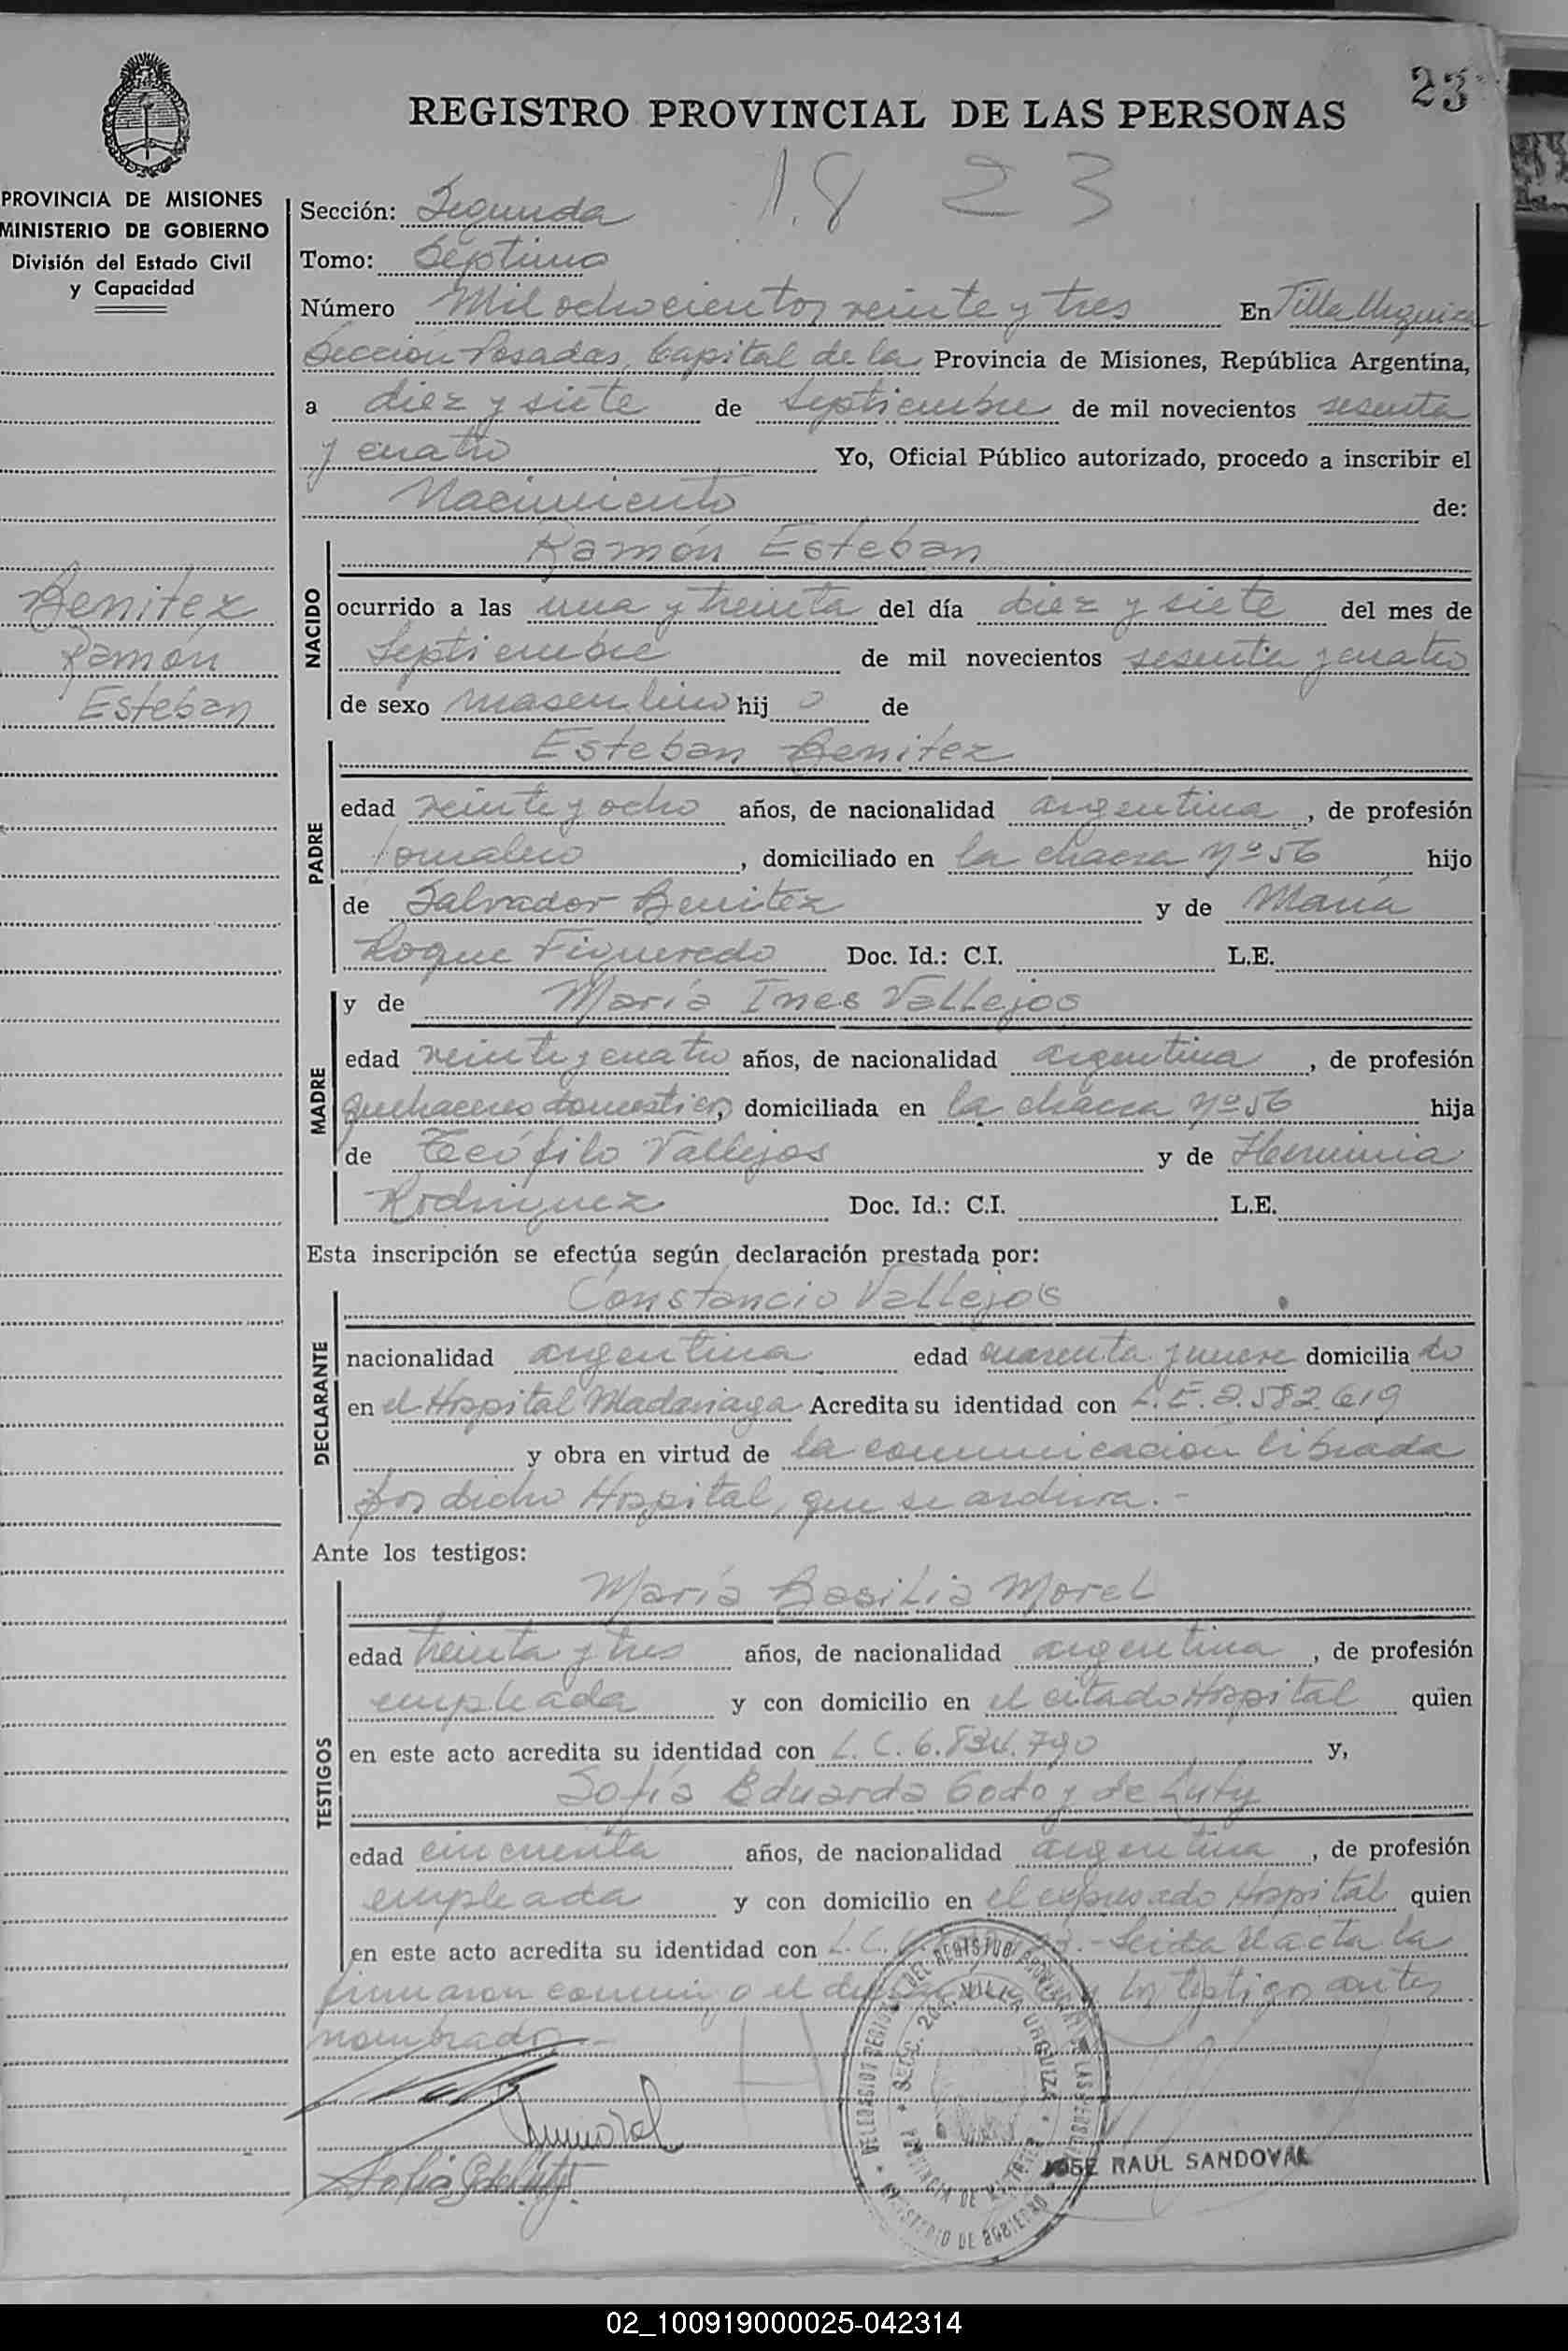 23
REGISTRO PROVINCIAL DE LAS PERSONAS
1.8 23
PROVINCIA DE MISIONES
MINISTERIO DE GOBIERNO
División del Estado Civil
y Capacidad
Sección: Segunda
Tomo: Septimo
Número Mil ochocientos veinte y tres En Villa Urquiza
Sección Posadas, Capital de la Provincia de Misiones, República Argentina,
a diez y siete de Septiembre de mil novecientos sesenta
y cuatro Yo, Oficial Público autorizado, procedo a inscribir el
Nacimiento de:
Benitez
Ramón
Esteban
NACIDO
Ramón Esteban
ocurrido a las una y treinta del día diez y siete del mes de
Septiembre de mil novecientos sesenta y cuatro
de sexo masculino hij o de
PADRE
Esteban Benitez
edad veinte y ocho años, de nacionalidad argentina, de profesión
Jornalero, domiciliado en la chacra Nº 56 hijo
de Salvador Benitez y de María
Roque Figueredo Doc. Id.: C.I. L.E.
MADRE
y de María Ines Vallejos
edad veinte y cuatro años, de nacionalidad argentina, de profesión
quehaceres domesticos, domiciliada en la chacra Nº 56 hija
de Teófilo Vallejos y de Herminia
Rodriguez Doc. Id.: C.I. L.E.
Esta inscripción se efectúa según declaración prestada por:
DECLARANTE
Constancio Vallejos
nacionalidad argentina edad cuarenta y nueve domicilia do
en el Hospital Madariaga Acredita su identidad con L.E. 2.582.619
y obra en virtud de la comunicación librada
por dicho Hospital, que se archiva.-
Ante los testigos:
TESTIGOS
María Basilia Morel
edad treinta y tres años, de nacionalidad argentina, de profesión
empleada y con domicilio en el citado Hospital quien
en este acto acredita su identidad con L.C. 6.834.790 y,
Sofía Eduarda Godoy de Luty
edad cincuenta años, de nacionalidad argentina, de profesión
empleada y con domicilio en el expresado Hospital quien
en este acto acredita su identidad con L.C. .- Leida el acta la
firmaron conmigo el y los testigos antes
nombrados.-
JOSE RAUL SANDOVAL
02_100919000025-042314